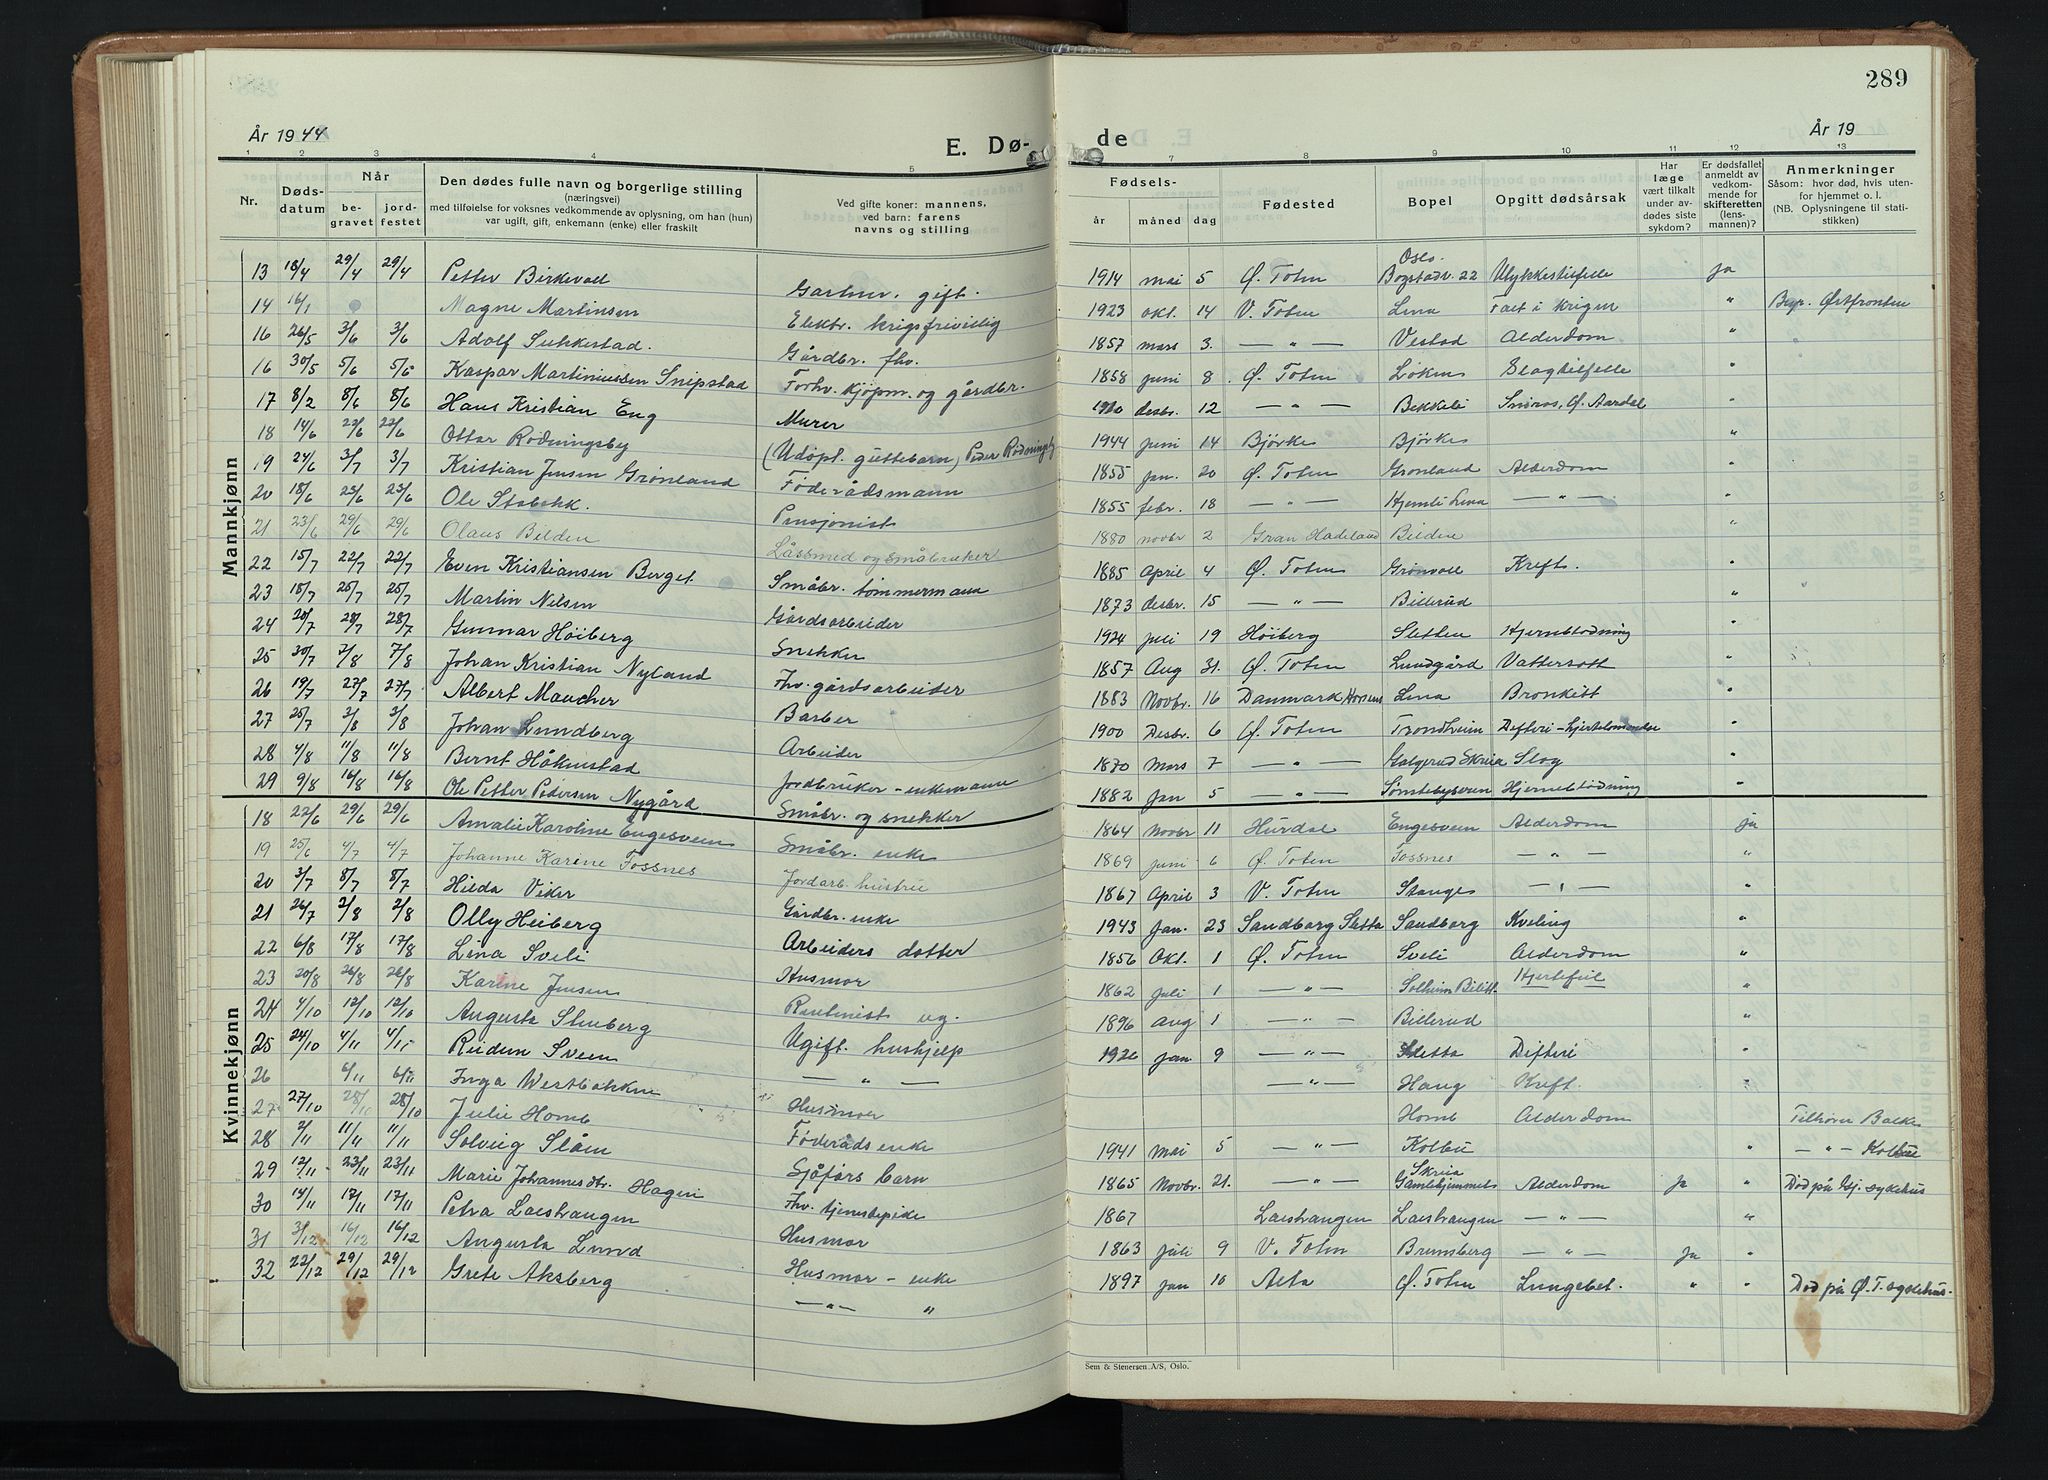 289
År 1944
E. Dø-
de
År 19
1 2 3 4 5 7 8 9 10 11 12 13
Nr.
Døds-
datum
Når
be-
gravet
jord-
festet
Den dødes fulle navn og borgerlige stilling
(næringsvei)
med tilføielse for voksnes vedkommende av oplysning, om han (hun)
var ugift, gift, enkemann (enke) eller fraskilt
Ved gifte koner: mannens,
ved barn: farens
navns og stilling
Fødsels-
år måned dag
Fødested
Bopel
Opgitt dødsårsak
Har
læge
vært tilkalt
under av-
dødes siste
sykdom?
Er dødsfallet
anmeldt av
vedkom-
mende for
skifteretten
(lens-
mannen)?
Anmerkninger
Såsom: hvor død, hvis uten-
for hjemmet o. l.
(NB. Oplysningene til stati-
stikken)
Mannkjønn
13 18/4 29/4 29/4 Petter Birkevoll Gartner. gift. 1914 mai 5 Ø. Toten Oslo. Bogstadv. 22 Ulykkestilfelle ja
14 16/1 Magne Martinsen Elektr. krigsfrivillig 1923 okt. 14 V. Toten Lena Falt i krigen " Begr. Østfronten
16 26/5 3/6 3/6 Adolf Sukkestad. Gårdbr. fhv. 1857 mars 3. — " — Vestad Alderdom "
16 30/5 5/6 5/6 Kaspar Martiniussen Snipstad Forhv. kjøpm. og gårdbr. 1858 juni 8 Ø. Toten Løken Slagtilfelle "
17 8/2 8/6 8/6 Hans Kristian Eng Murer 1920 desbr. 12 — " — Bekkeli "
18 14/6 22/6 22/6 Ottar Rødningsby (Udøpt guttebarn) Peder Rødningsby 1944 juni 14 Bjørke Bjørke "
19 24/6 3/7 3/7 Kristian Jensen Grønland Føderådsmann 1855 jan. 20 Ø. Toten Grønland Alderdom "
20 18/6 23/6 23/6 Ole Stabekk. Pensjonist 1855 febr. 18 — " — Hjemli Lena — " — "
21 23/6 29/6 29/6 Olaus Bilden Låssmed og småbruker 1880 novbr 2 Gran Hadeland Bilden "
22 15/7 22/7 22/7 Even Kristiansen Berget Småbr. tømmermann 1885 April 4 Ø. Toten Grønvoll Kreft. "
23 18/7 25/7 25/7 Martin Nilsen Gårdsarbeider 1873 desbr. 15 — " — Billerud "
24 20/7 28/7 28/7 Gunnar Høiberg Snekker 1924 juli 19 Høiberg Sletten Hjernebtødning "
25 30/7 7/8 7/8 Johan Kristian Nyland Fhv. gårdsarbeider 1857 Aug 31. Ø. Toten Lundgård Vattersott "
26 19/7 27/7 27/7 Albert Maucher Barber 1883 Novbr. 16 Danmark Horsens Lena Bronkitt "
27 25/7 3/8 3/8 Johan Lundberg Arbeider 1900 Desbr. 6 Ø. Toten Trondheim Difteri - hjertelammelse "
28 4/8 11/8 11/8 Bernt Håkenstad Jordbruker - enkemann 1870 Mars 7 — " — Skreia Slag "
29 9/8 16/8 16/8 Ole Petter Pedersen Nygård Småbr. og snekker 1882 Jan 5 — " — Hjernebtødning "
Kvinnekjønn
18 22/6 29/6 29/6 Amalie Karoline Engesveen Småbr. enke 1864 Novbr 11 Hurdal Engesveen Alderdom ja
19 25/6 4/7 4/7 Johanne Karine Fossnes Jordarb. hustru 1869 juni 6 Ø. Toten Fossnes — " — "
20 3/7 8/7 8/7 Hilda Viker Gårdbr. enke 1867 April 3 V. Toten Stenges — " — "
21 26/7 2/8 2/8 Olly Heiberg Arbeiders datter 1943 Jan. 23 Sandborg Sletta Sandborg Kveling "
22 6/8 17/8 17/8 Lina Sveli Husmor 1856 Okt. 1 Ø. Toten Sveli Alderdom "
23 20/8 26/8 26/8 Karine Jensen Rentenist ug. 1862 Juli 1 — " — Solheim Bilitt Hjertefeil "
24 4/10 12/10 12/10 Augusta Stenberg Ugift. hushjelp 1896 Aug 1 — " — Billerud "
25 24/10 4/11 4/11 Reidun Sveen — " — 1926 jan 9 — " — Sletta Difteri "
26 6/11 6/11 Inga Westbakken Husmor — " — Haug Kreft. "
27 27/10 28/10 28/10 Julie Homb Føderåds enke Homb Alderdom Tilhører Balke
28 2/11 11/11 11/11 Solveig Slåen Sjåførs barn 1941 Mai 5 — " — Kolbu " — " — Kolbu
29 12/11 23/11 23/11 Marie Johannesdtr. Hagen Fhv. tjenestepike 1865 Novbr. 21. — " — Skreia Gamlehjemmet Alderdom Ja " Død på Gj. sykehus
30 14/11 17/11 17/11 Petra Laeshaugen Husmor 1867 Laeshaugen Laeshaugen — " — "
31 3/12 16/12 16/12 Augusta Lund Husmor - enke 1863 juli 9 V. Toten Brunsberg — " — Ja "
32 22/12 29/12 29/12 Grete Aksberg — " — " 1897 jan 10 Alta Ø. Toten Lungebet. " " Død på Ø.T. sykehus.
Sem & Stenersen A/S, Oslo.